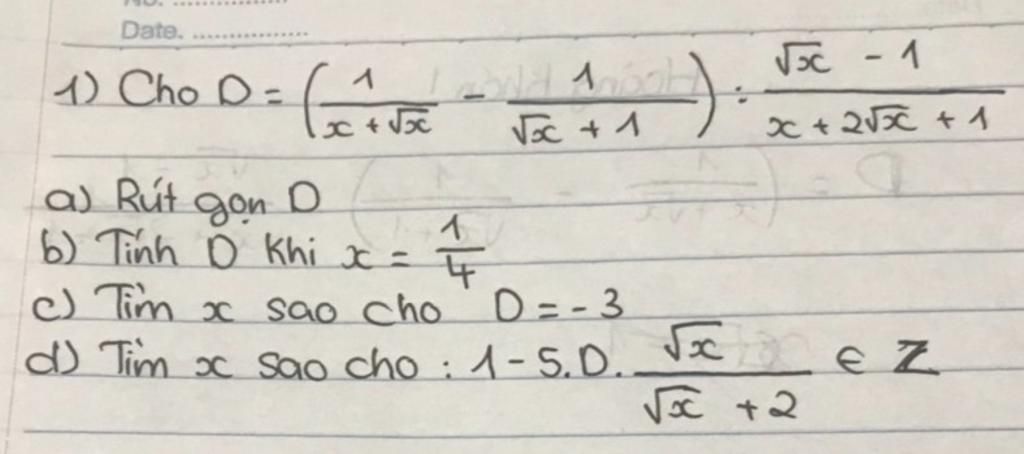 Date. ................
1) Cho D = (1/(x + √x) - 1/(√x + 1)) : (√x - 1)/(x + 2√x + 1)
a) Rút gọn D
b) Tính D khi x = 1/4
c) Tìm x sao cho D = - 3
d) Tìm x sao cho : 1 - 5.D. √x/(√x + 2) ∈ Z